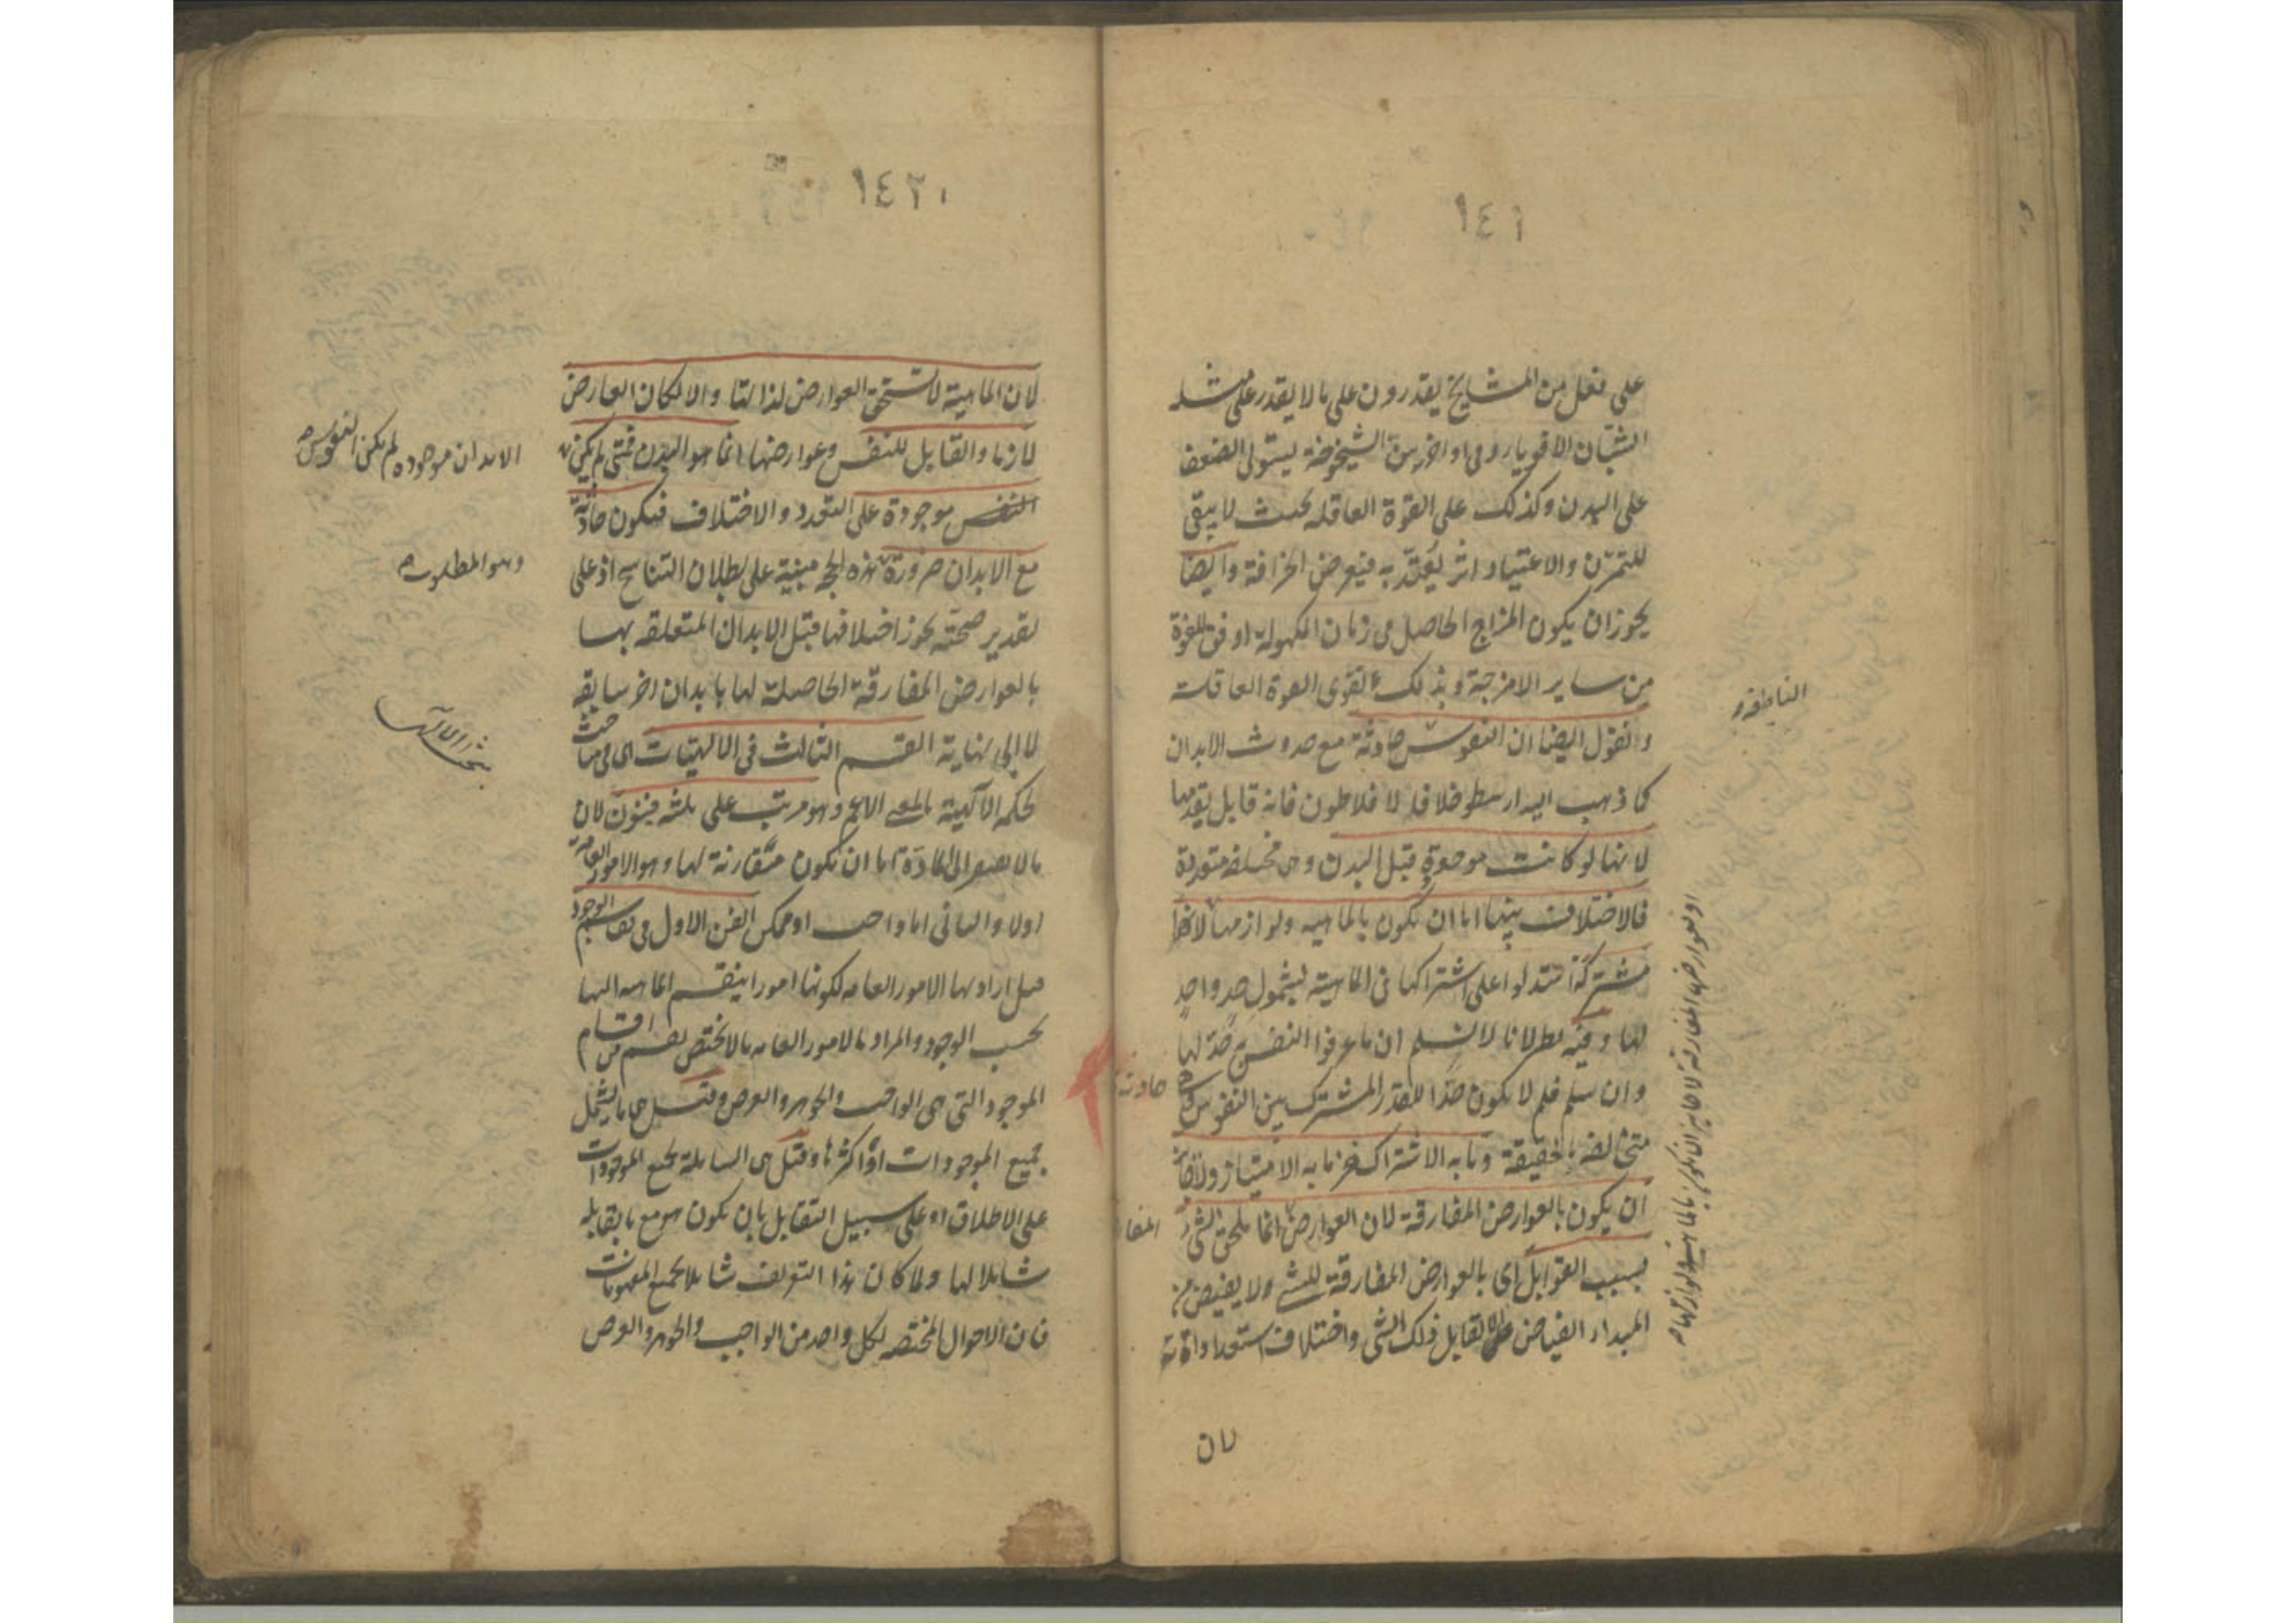 ١٤١
على فعل من المشايخ يقدرون على ما لا يقدر على مثله
الشبّان الاقوياء و فى اواخر سن الشيخوخة يستولى الضعف
على البدن وكذلك على القوة العاقله بحيث لا يبقى
للتمرّن والاعتياد اثر يُعتدّ به فيعرض الخرافة وايضا
يجوز ان يكون المزاج الحاصل فى زمان الكهولة اوفق للقوة
من ساير الامزجة وبذلك تقوى القوة العاقلة
الناطقة و
ونقول ايضا ان النفوس حادثة مع حدوث الابدان
كما ذهب اليه ارسطو خلافا لافلاطون فانه قايل بقدمها
لانها لو كانت موجودة قبل البدن وهى مختلفة متعددة
فالاختلاف بينها اما ان يكون بالماهيه ولوازمها لانها
مشتركة استدلوا على اشتراكها فى الماهية بشمول حدٍ واحدٍ
لها وفيه بطلانا لا نسلم ان ما عرفوا النفس به حدّ لها
وان سلم فلم لا يكون حدًا للقدر المشترك بين النفوس
متخالفه بالحقيقة وما به الاشتراك غير ما به الامتياز ولا جائز
ان يكون بالعوارض المفارقة لان العوارض انما تلحق الشئ
بسبب القوابل اى بالعوارض المفارقة للشئ ولا يفيض من
المبداء الفياض الا لقابل ذلك الشى واختلاف استعداداته
او بعوارضها المفارقة لا جايز ان يكون بالماهية ولوازمها
حادثة
المفا
لان
١٤٢٠
لان الماهية لا تستحق العوارض لذاتها والا لكان العارض
لازما والقابل للنفس وعوارضها انما هو البدن فمتى لم يكن
الابدان موجوده لم يكن النفوس
النفس موجودة على التعدد والاختلاف فيكون حادثة
مع الابدان ضرورة هذه الحجه مبنية على بطلان التناسخ اذ على
وهو المطلوب
تقدير صحته يجوز اختلافها قبل الابدان المتعلقه بها
بالعوارض المفارقة الحاصلة لها بابدان اخر سابقه
لا الى نهاية القسم الثالث فى الالهيات اى فى مباحث
الحكمه الالهية بالمعنى الاعم وهو مرتب على ثلثه فنون لان
ما لا يفتقر الى المادة اما ان يكون مقارنة لها وهو الامور العامة
اولا والثانى اما واجب او ممكن الفن الاول فى تقاسيم الوجود
قيل اراد بها الامور العامه لكونها امورا ينقسم الماهيه اليها
بحسب الوجود والمراد بالامور العامه ما لا يختص بقسم من اقسام
الموجود التى هى الواجب والجوهر والعرض وقيل هى ما يشمل
جميع الموجودات او اكثرها وقيل هى الشاملة لجميع الموجودات
على الاطلاق او على سبيل التقابل بان يكون هو مع ما يقابله
شاملا لها ولما كان هذا التعريف شاملا لجميع المفهومات
فان الاحوال المختصه بكل واحد من الواجب والجوهر والعرض